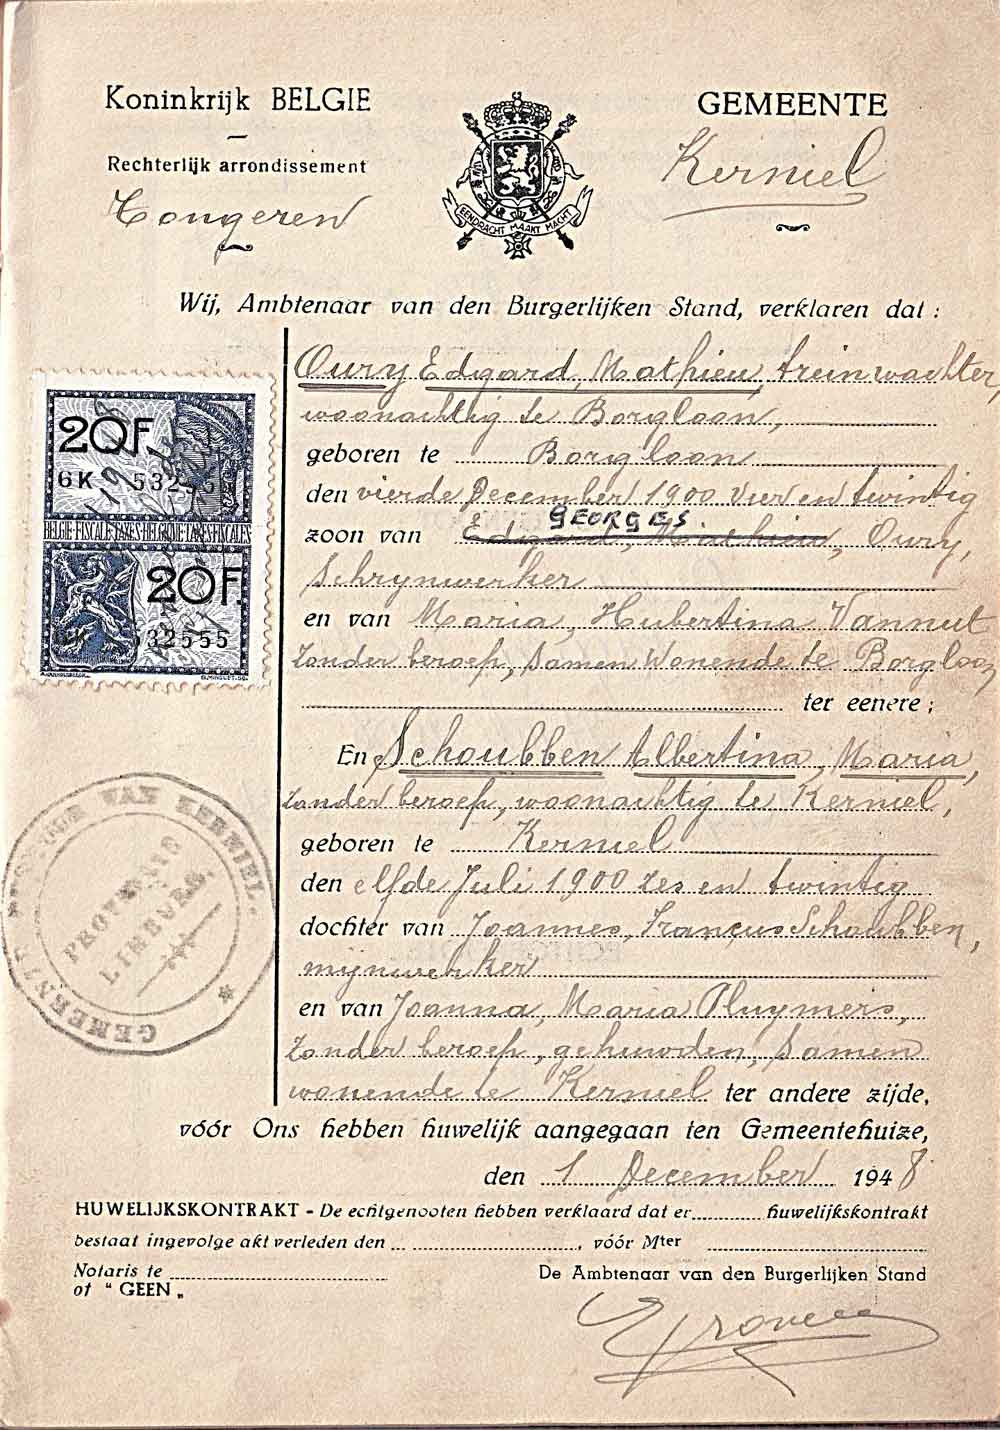 Koninkrijk BELGIE
Rechterlijk arrondissement
Tongeren
EENDRACHT MAAKT MACHT
GEMEENTE
Kerniel
Wij, Ambtenaar van den Burgerlijken Stand, verklaren dat :
Oury Edgard, Mathieu, treinwachter,
woonachtig te Borgloon,
geboren te Borgloon
den vierde December 1900 vier en twintig
GEORGES
zoon van Edgard, Mathieu, Oury,
Schrynwerker
en van Maria, Hubertina Vannut
zonder beroep, samen wonende te Borgloon
ter eenere ;
En Schoubben Albertina, Maria,
zonder beroep, woonachtig te Kerniel,
geboren te Kerniel
den elfde Juli 1900 zes en twintig
dochter van Joannes, Francus Schoubben,
mijnwerker
en van Joanna, Maria Pluymers,
zonder beroep, gehuwden, samen
wonende te Kerniel ter andere zijde,
vóór Ons hebben huwelijk aangegaan ten Gemeentehuize,
den 1 December 1948
HUWELIJKSKONTRAKT - De echtgenooten hebben verklaard dat er huwelijkskontrakt
bestaat ingevolge akt verleden den , vóór Mter
Notaris te
of " GEEN „
De Ambtenaar van den Burgerlijken Stand
20F
6K
BELGIE-FISCALE TAXES-BELGIQUE-TAXES FISCALES
20F.
532555
GEMEENTE VAN KERNIEL.
PROVINCIE
LIMBURG.